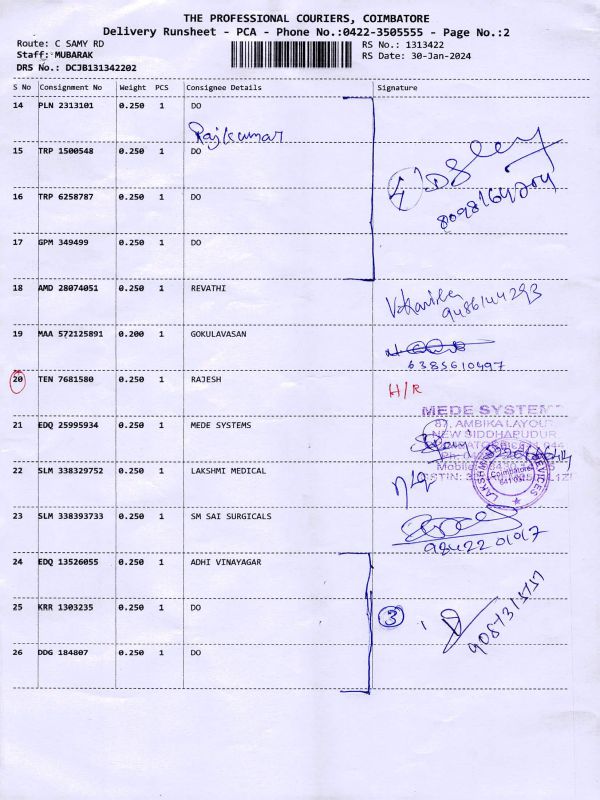 THE PROFESSIONAL COURIERS, COIMBATORE
Delivery Runsheet - PCA - Phone No.:0422-3505555 - Page No.:2
Route: C SAMY RD
RS No.: 1313422
Staff: MUBARAK
RS Date: 30-Jan-2024
DRS No.: DCJB131342202
S No Consignment No Weight PCS Consignee Details Signature
14 PLN 2313101 0.250 1 DO
Rajkumar
15 TRP 1500548 0.250 1 DO
16 TRP 6258787 0.250 1 DO
17 GPM 349499 0.250 1 DO
18 AMD 28074051 0.250 1 REVATHI
9486144293
19 MAA 572125891 0.200 1 GOKULAVASAN
6385610497
20 TEN 7681580 0.250 1 RAJESH H/R
MEDE SYSTEM
87, AMBIKA LAYOUT
NEW SIDDHAPUDUR
21 EDQ 25995934 0.250 1 MEDE SYSTEMS
22 SLM 338329752 0.250 1 LAKSHMI MEDICAL
Coimbatore
23 SLM 338393733 0.250 1 SM SAI SURGICALS
9842201917
24 EDQ 13526055 0.250 1 ADHI VINAYAGAR
25 KRR 1303235 0.250 1 DO 3
26 DDG 184807 0.250 1 DO